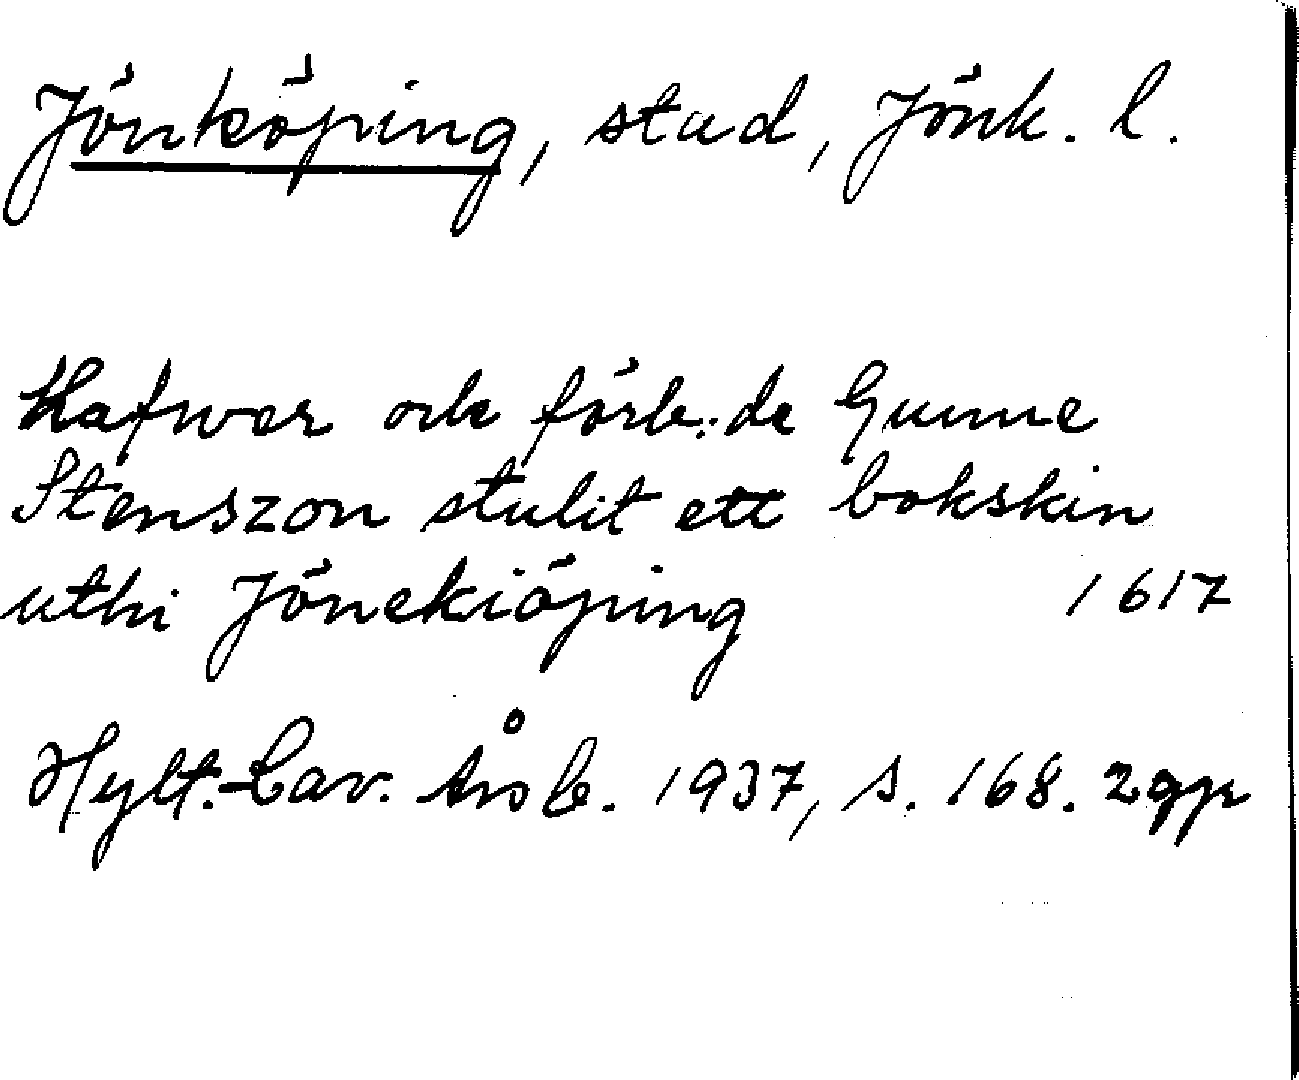 Jönköping, stad, Jönk. l.
Hafwer och förb:de Gunne
Stenszon stulit ett bokskin
uthi Jönekiöping 1617
Hylt.-Cav. Årsb. 1937, s. 168. 2gp